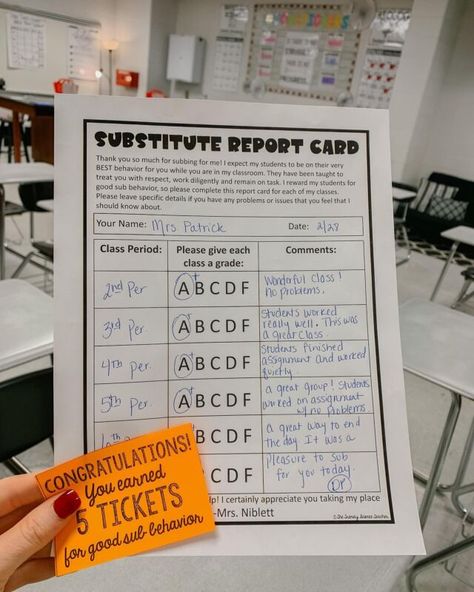 SUBSTITUTE REPORT CARD
Thank you so much for subbing for me! I expect my students to be on their very
BEST behavior for you while you are in my classroom. They have been taught to
treat you with respect, work diligently and remain on task. I reward my students for
good sub behavior, so please complete this report card for each of my classes.
Please leave specific details if you have any problems or issues that you feel that I
should know about.
Your Name: Mrs Patrick Date: 2/28
Class Period: Please give each class a grade: Comments:
2nd Per
A+ B C D F
Wonderful Class!
No problems.
3rd Per
A+ B C D F
Students worked
really well. This was
a great class
4th Per
A+ B C D F
Students finished
assignment and worked
quietly
5th Per
A+ B C D F
a great group! Students
worked on assignment
w/ no problems
B C D F
a great way to end
the day. It was a
B C D F
pleasure to sub
for you today.
! I certainly appreciate you taking my place
-Mrs. Niblett
CONGRATULATIONS!
You earned
5 TICKETS
for good sub behavior